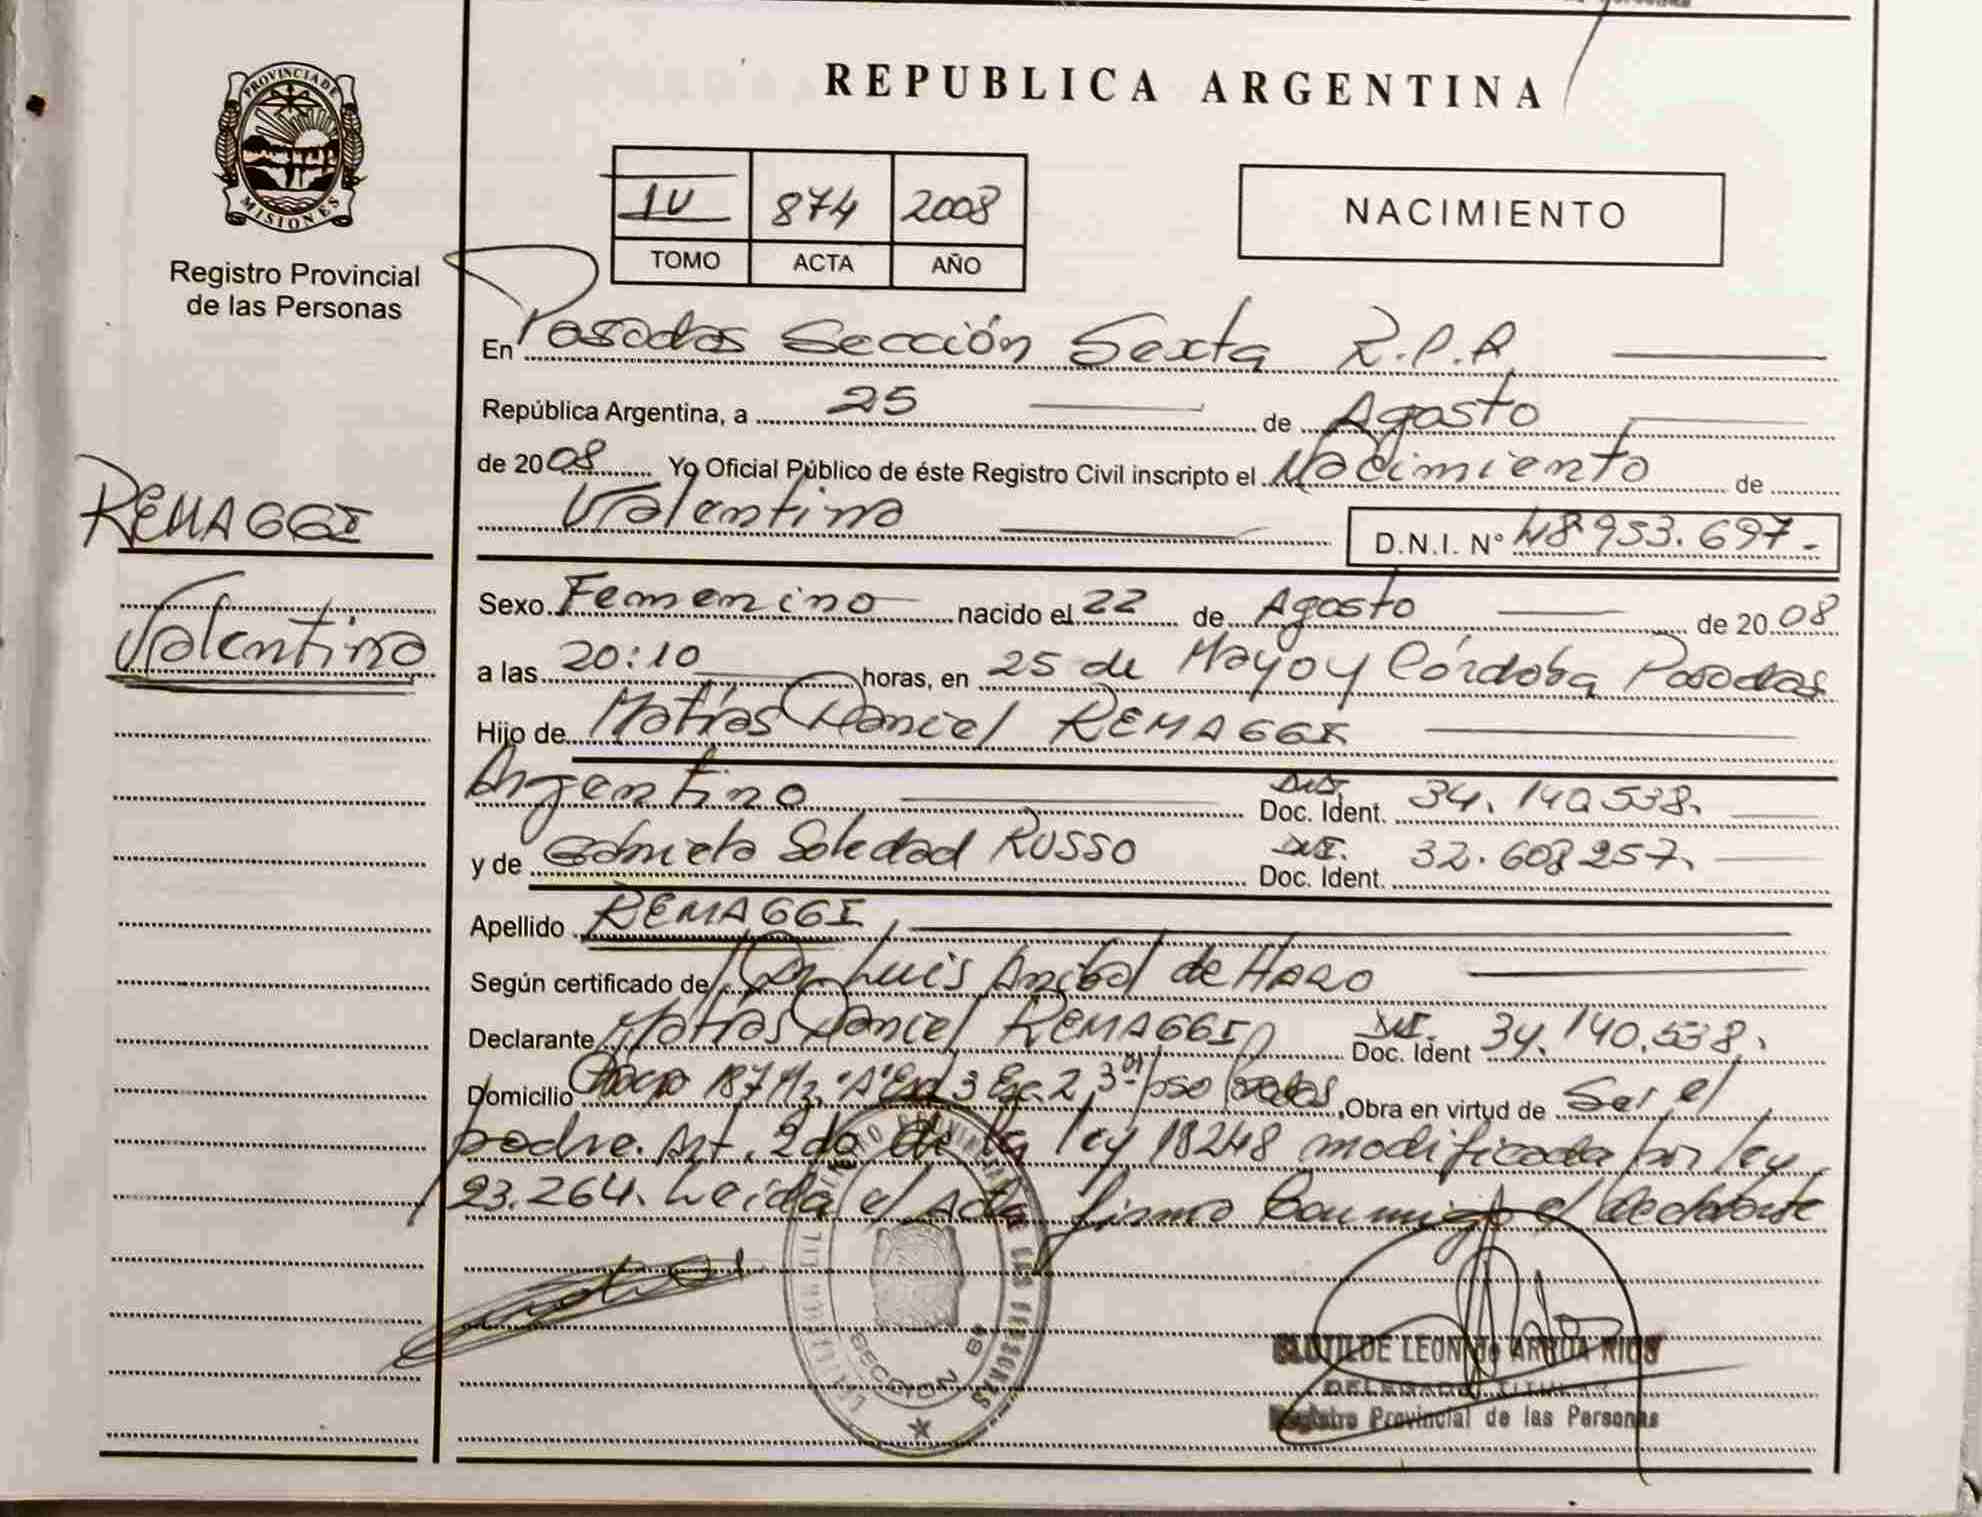 PROVINCIA DE
MISIONES
Registro Provincial
de las Personas
REPUBLICA ARGENTINA
IV 874 2008
TOMO ACTA AÑO
NACIMIENTO
En Posadas Sección Sexta R.P.P.
República Argentina, a 25 de Agosto
de 2008 Yo Oficial Público de éste Registro Civil inscripto el Nacimiento de
Valentina D.N.I. N° 48.953.697.-
REMAGGI
Valentina
Sexo Femenino nacido el 22 de Agosto de 2008
a las 20:10 horas, en 25 de Mayo y Córdoba Posadas
Hijo de Matías Daniel REMAGGI
Argentino DNI. Doc. Ident. 34.140.538.
y de Gabriela Soledad RUSSO DNI. Doc. Ident. 32.608.257.
Apellido REMAGGI
Según certificado de Dr. Luis Anibal de HARO
Declarante Matías Daniel REMAGGI DNI. Doc. Ident 34.140.538.
Domicilio 187 Mz. "A" 3 Esc. 2, 3er piso Posadas, Obra en virtud de Ser el
padre. Art. 2do de la ley 18248 modificada por ley
23.264. Leida el Acta firma conmigo el declarante
SECCION 6a
CLOTILDE LEON de ARRUA RIOS
DELEGADA TITULAR
Registro Provincial de las Personas